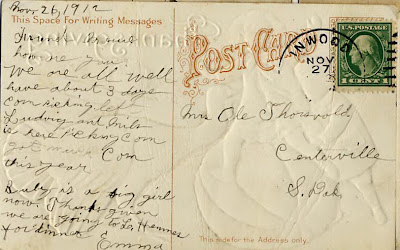 Nov. 26, 1912
This Space For Writing Messages
how are you
We are all well
have about 3 days
Corn Picking left
Ludvig and Nils
is here Picking Corn
got much Corn
this year
Ruby is a big girl
now. Thanksgiven
we are going to
for dinner
Emma
POST CARD
INWOOD
NOV
27
U.S. POSTAGE
1 CENT 1
Mrs Ole Thorsvold
Centerville
S. Dak.
This side for the Address only.